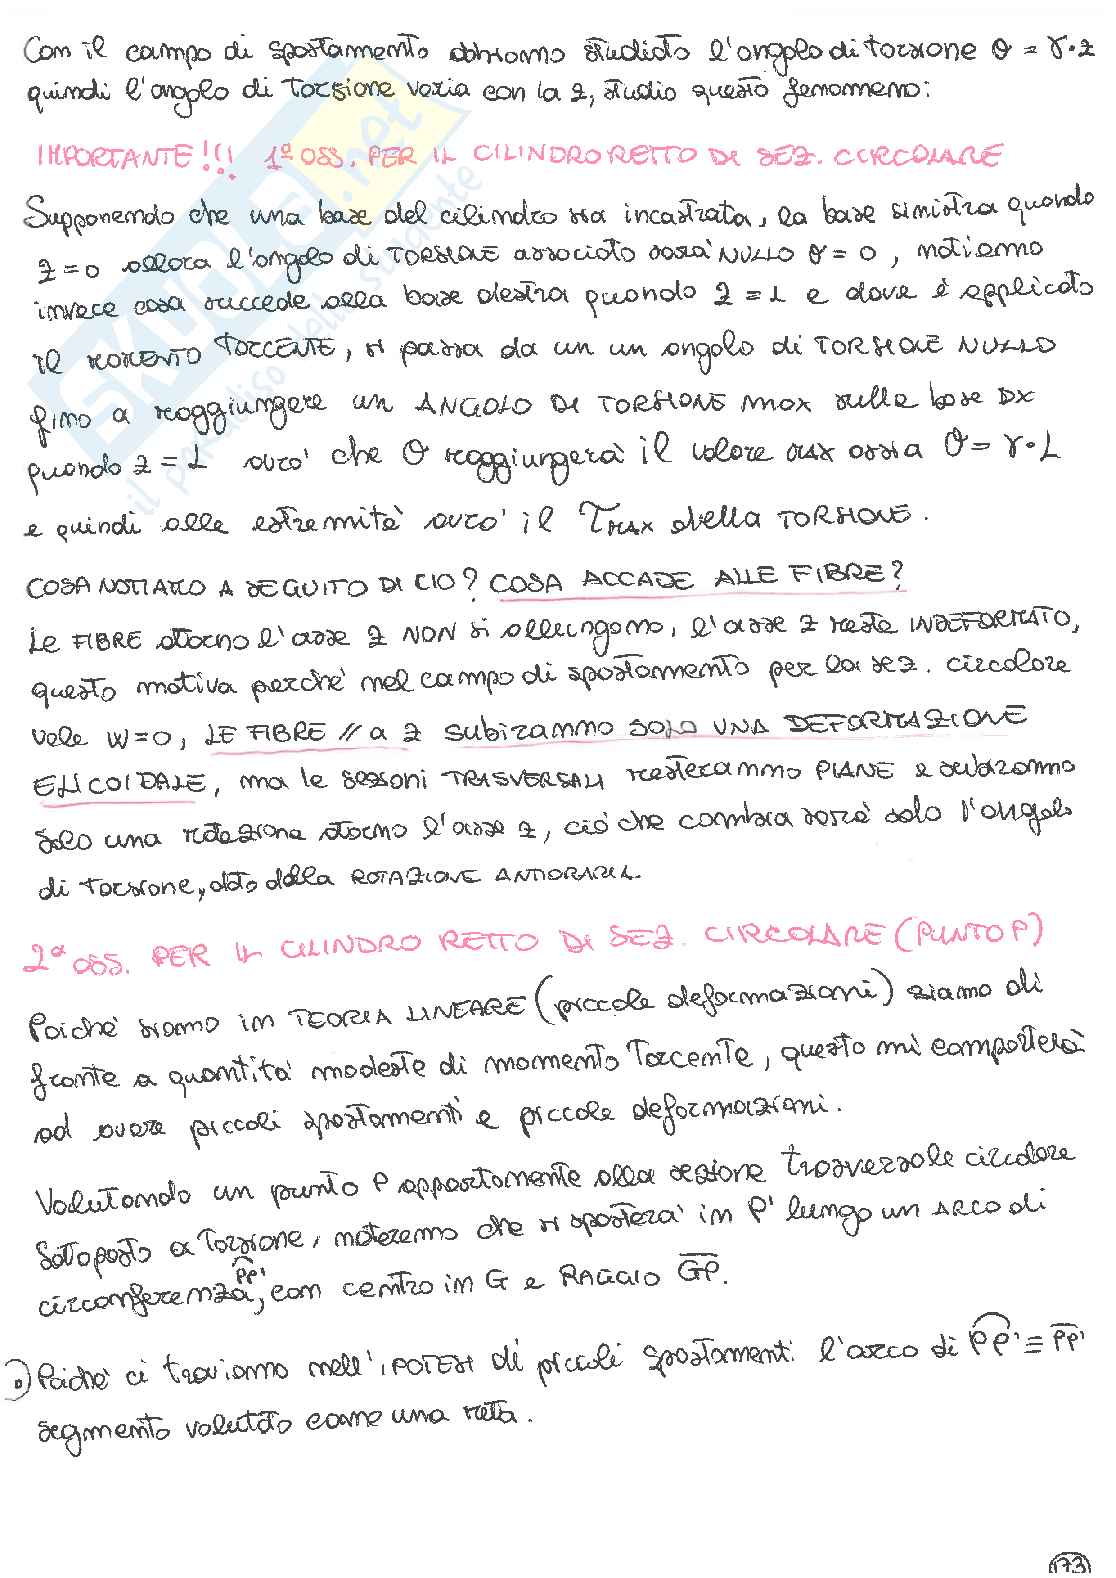 Con il campo di spostamento abbiamo studiato l'angolo di torsione θ = γ·z
quindi l'angolo di torsione varia con la z, studio questo fenomeno:
IMPORTANTE!!! 1ª OSS. PER IL CILINDRO RETTO DI SEZ. CIRCOLARE
Supponendo che una base del cilindro sia incastrata, la base sinistra quando
z=0 allora l'angolo di TORSIONE associato sarà NULLO θ=0, notiamo
invece cosa succede alla base destra quando z=L e dove è applicato
il MOMENTO TORCENTE, si passa da un un angolo di TORSIONE NULLO
fino a raggiungere un ANGOLO DI TORSIONE max sulla base DX
quando z=L avrò che θ raggiungerà il valore max ossia θ=γ·L
e quindi alle estremità avrò il τMAX della TORSIONE.
COSA NOTIAMO A SEGUITO DI CIO? COSA ACCADE ALLE FIBRE?
LE FIBRE attorno l'asse z NON si allungano, l'asse z resta INDEFORMATO,
questo motiva perchè nel campo di spostamento per la sez. circolare
vale w=0, LE FIBRE // a z subiranno SOLO UNA DEFORMAZIONE
ELICOIDALE, ma le sezioni TRASVERSALI resteranno PIANE e subiranno
solo una rotazione attorno l'asse z, ciò che cambia sarà solo l'angolo
di torsione, dato dalla ROTAZIONE ANTIORARIA.
2ª OSS. PER IL CILINDRO RETTO DI SEZ. CIRCOLARE (PUNTO P)
Poichè siamo in TEORIA LINEARE (piccole deformazioni) siamo di
fronte a quantità modeste di momento Torcente, questo mi comporterà
ad avere piccoli spostamenti e piccole deformazioni.
Valutando un punto P appartenente alla sezione trasversale circolare
sottoposto a Torsione, noteremo che si sposterà in P' lungo un ARCO di
circonferenza PP', con centro in G e RAGGIO GP.
Poichè ci troviamo nell'IPOTESI di piccoli spostamenti l'arco di PP' ≡ PP'
segmento valutato come una retta.
173
SKUOLA.net
il paradiso dello studente